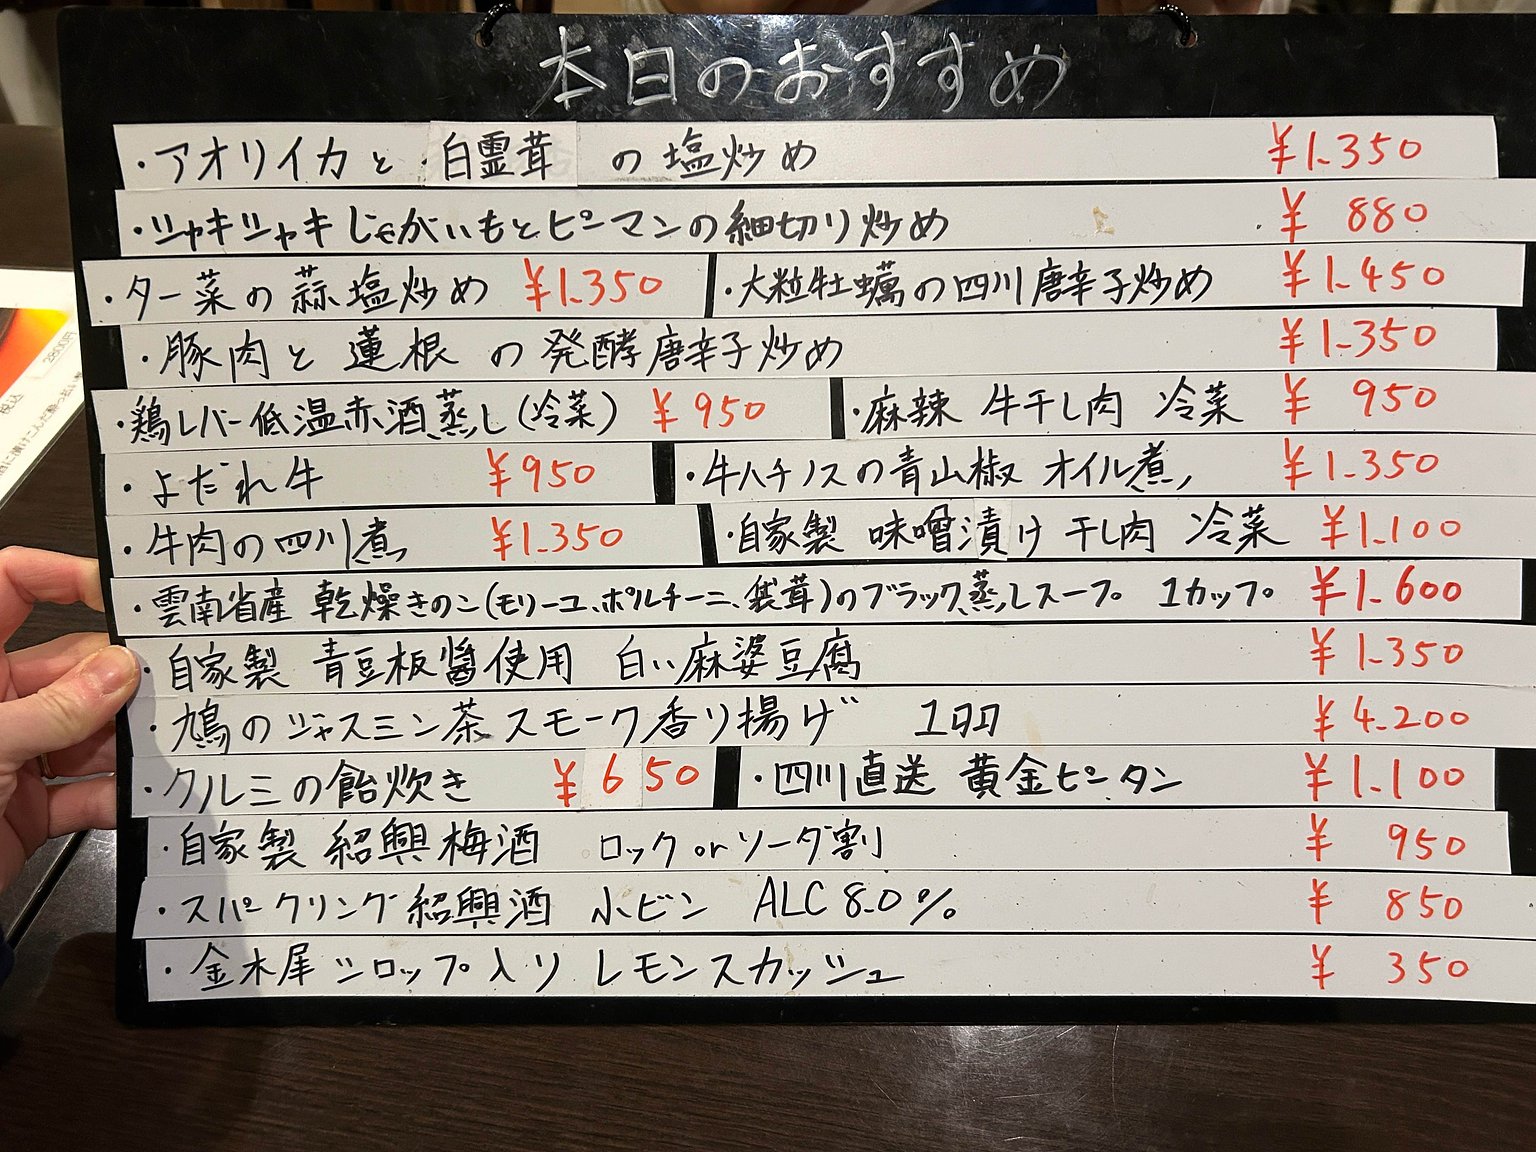 本日のおすすめ
・アオリイカと白霊茸の塩炒め ¥1.350
・シャキシャキじゃがいもとピーマンの細切り炒め ¥880
・ター菜の蒜塩炒め ¥1.350 ・大粒牡蠣の四川唐辛子炒め ¥1.450
・豚肉と蓮根の発酵唐辛子炒め ¥1.350
・鶏レバー低温赤酒蒸し(冷菜) ¥950 ・麻辣 牛干し肉 冷菜 ¥950
・よだれ牛 ¥950 ・牛ハチノスの青山椒 オイル煮 ¥1.350
・牛肉の四川煮 ¥1.350 ・自家製 味噌漬け 干し肉 冷菜 ¥1.100
・雲南省産 乾燥きのこ(モリーユ、ポルチーニ、袋茸)のブラック蒸しスープ 1カップ ¥1.600
・自家製 青豆板醤使用 白い麻婆豆腐 ¥1.350
・鳩のジャスミン茶スモーク香り揚げ 1羽 ¥4.200
・クルミの飴炊き ¥650 ・四川直送 黄金ピータン ¥1.100
・自家製 紹興梅酒 ロックorソーダ割 ¥950
・スパークリング紹興酒 小ビン ALC8.0% ¥850
・金木犀シロップ入り レモンスカッシュ ¥350
2800円